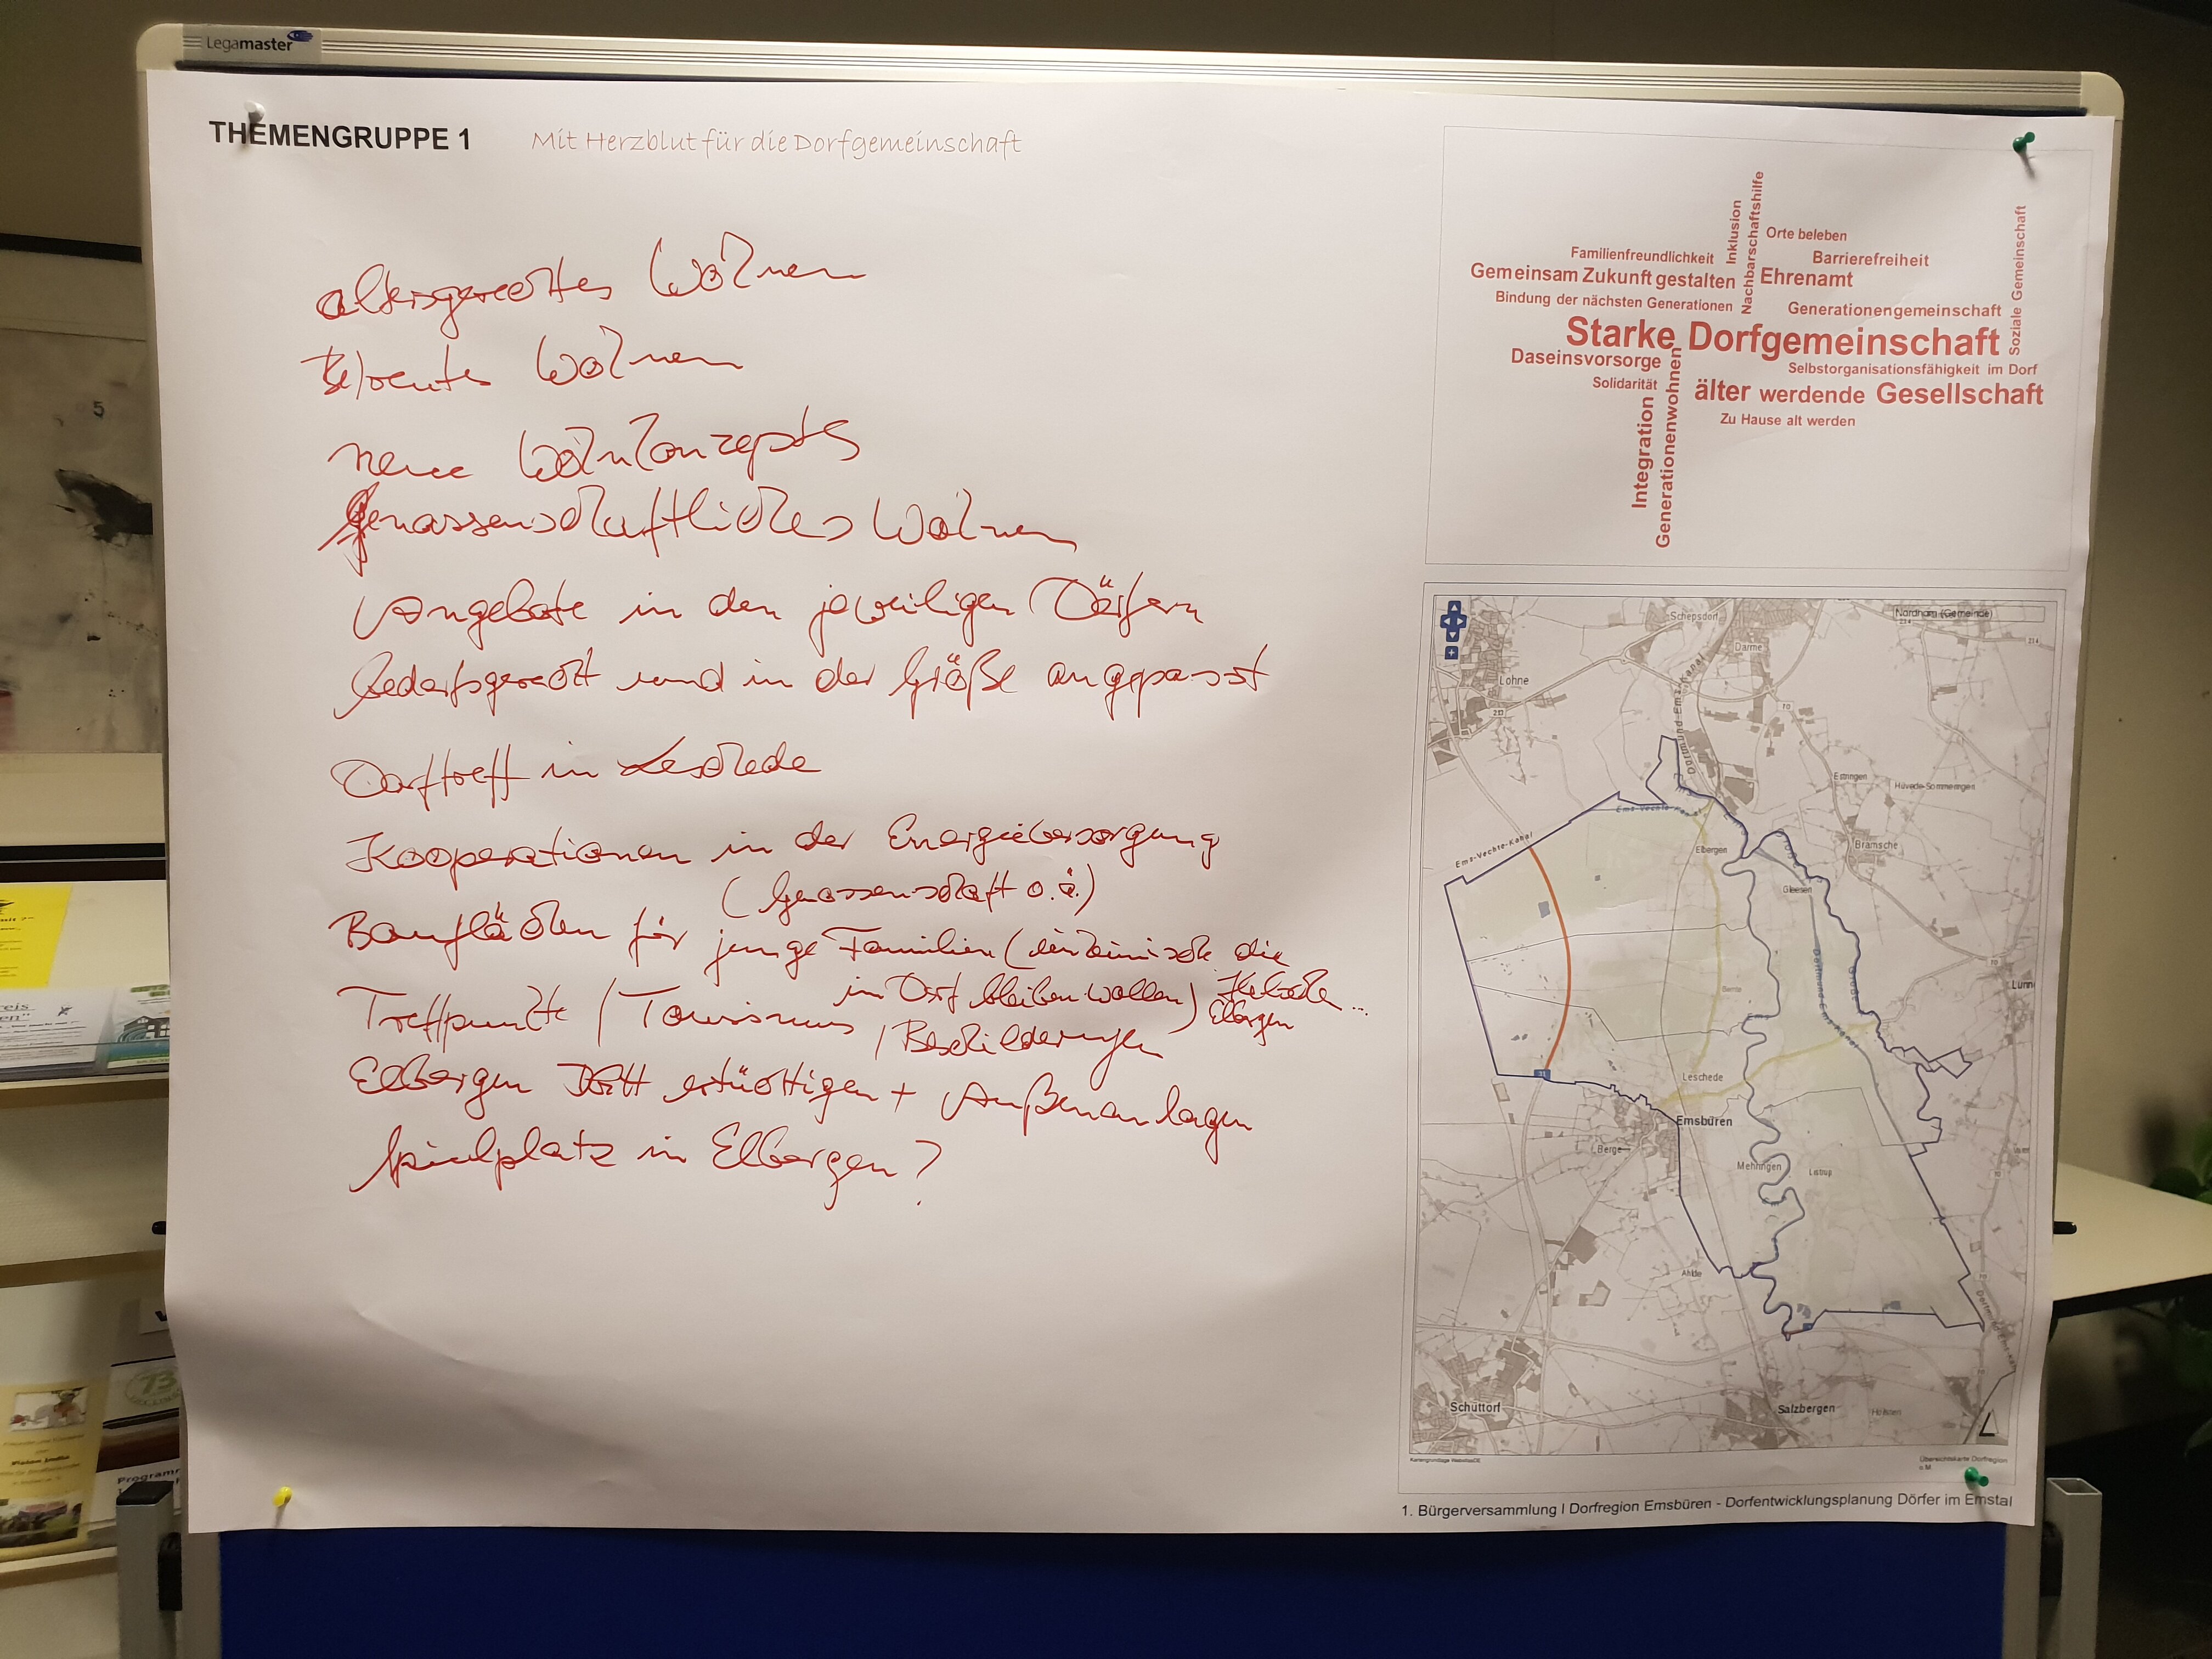 Legamaster
THEMENGRUPPE 1
Mit Herzblut für die Dorfgemeinschaft
altersgerechtes Wohnen
betreutes Wohnen
neue Wohnkonzepte
genossenschaftliches Wohnen
Angebote in den jeweiligen Dörfern
bedarfsgerecht und in der Größe angepasst
Dorftreff in Leschede
Kooperationen in der Energieversorgung
(Genossenschaft o.ä.)
Bauflächen für junge Familien (einheimische die
im Dorf bleiben wollen)
Elbergen
Treffpunkte / Tourismus / Beschilderungen
Elbergen ertüchtigen + Außenanlagen
Spielplatz in Elbergen?
Inklusion
Nachbarschaftshilfe
Orte beleben
Familienfreundlichkeit
Barrierefreiheit
Gemeinsam Zukunft gestalten
Ehrenamt
Bindung der nächsten Generationen
Generationengemeinschaft
Soziale Gemeinschaft
Starke Dorfgemeinschaft
Daseinsvorsorge
Selbstorganisationsfähigkeit im Dorf
Solidarität
älter werdende Gesellschaft
Zu Hause alt werden
Integration
Generationenwohnen
Schepsdorf
Darme
Lohne
213
70
Dortmund-Ems-Kanal
Estringen
Hüvede-Sommeringen
Ems-Vechte-Kanal
Ems-Vechte-Kanal
Elbergen
Bramsche
Gleesen
Bernte
Dortmund-Ems-Kanal
Lünne
Leschede
31
Emsbüren
Berge
Mehringen
Listrup
Ahlde
Schüttorf
Salzbergen
Holsten
Übersichtskarte Dorfregion
o.M.
1. Bürgerversammlung I Dorfregion Emsbüren - Dorfentwicklungsplanung Dörfer im Emstal
73